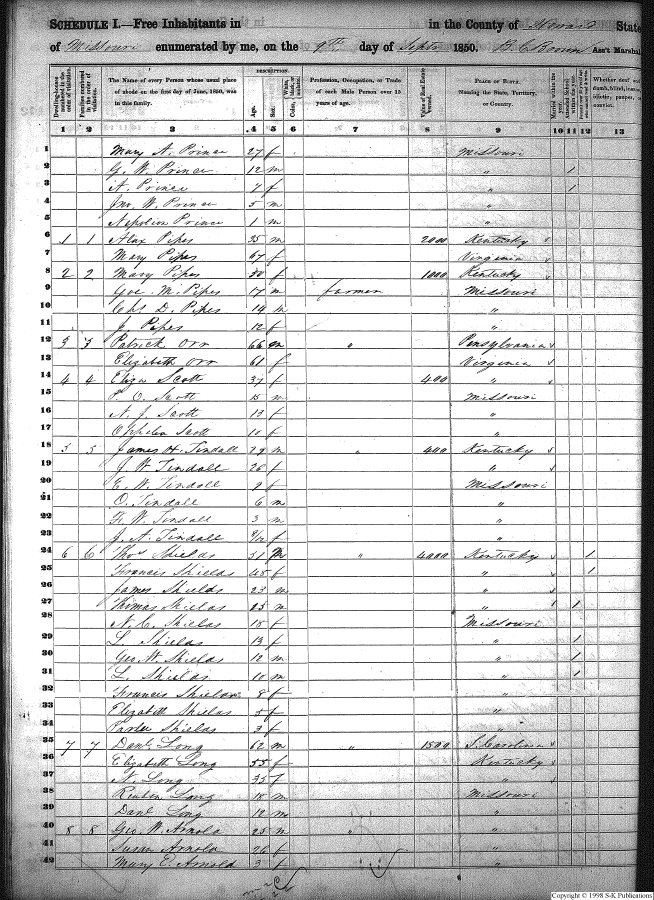 SCHEDULE I.—Free Inhabitants in in the County of Howard State
of Missouri enumerated by me, on the 9th day of Septr 1850. B. C. Brown Ass't Marshal
Dwelling-houses numbered in the order of visitation.
Families numbered in the order of visitation.
The Name of every Person whose usual place of abode on the first day of June, 1850, was in this family.
DESCRIPTION.
Age.
Sex.
White, black, or mulatto.
Color,
Profession, Occupation, or Trade of each Male Person over 15 years of age.
Value of Real Estate owned.
PLACE OF BIRTH
Naming the State, Territory, or Country.
Married within the year.
Attended School within the year.
Whether deaf and dumb, blind, insane, idiotic, pauper, or convict.
1 2 3 4 5 6 7 8 9 10 11 12 13
1 Mary A. Prince 27 f Missouri
2 G. W. Prince 12 m " 1
3 A. Prince 7 f " 1
4 Jno. W. Prince 5 m "
5 Napolion Prince 1 m "
6 1 1 Alax Pipes 35 m 2000 Kentucky
7 Mary Pipes 67 f Virginia
8 2 2 Mary Pipes f 1000 Kentucky
9 M. Pipes 17 m farmer Missouri
10 D. Pipes 14 m "
11 J. Pipes 12 f "
12 3 3 Patrick Orr 66 m " Pensylvania
13 Elizabeth Orr 61 f Virginia
14 4 4 Eliza Scott 37 f 400 "
15 O. Scott 15 m Missouri
16 N. J. Scott 13 f "
17 Ophelia Scott 10 f "
18 5 5 James H. Tindall 29 m " 400 Kentucky
19 J. W. Tindall 26 f "
20 E. W. Tindall 9 f Missouri
21 O. Tindall 6 m "
22 W. Tindall 3 m "
23 J. A. Tindall f "
24 6 6 Thos Shields 51 m " 4000 Kentucky 1
25 Francis Shields 45 f " 1
26 James Shields 23 m "
27 Thomas Shields m " 1
28 N. C. Shields 15 f Missouri
29 L. Shields 13 f " 1
30 Geo. W. Shields 12 m " 1
31 L. Shields 10 m " 1
32 Francis Shields 8 f "
33 Elizabeth Shields 5 f "
34 Shields 3 f "
35 7 7 Danl Long 62 m " 1500 S. Carolina
36 Elizabeth Long 55 f Kentucky
37 N. Long 35 f "
38 Reuben Long 18 m Missouri
39 Danl Long 12 m "
40 8 8 Geo. W. Arnold 25 m " "
41 Susan Arnold 26 f "
42 Mary E. Arnold 3 f "
Copyright © 1998 S-K Publications